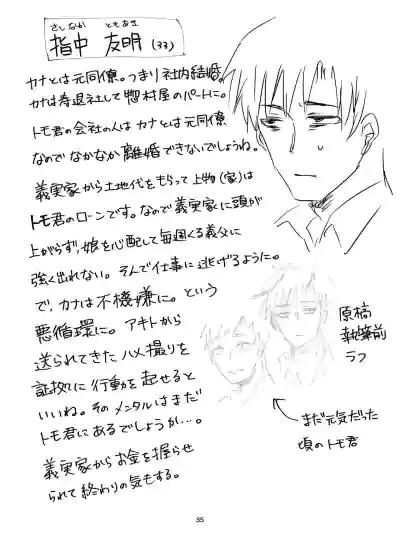 さしなか ともあき
指中 友明(33)
カナとは元同僚。つまり社内結婚。
カナは寿退社して惣村屋のパートに。
トモ君の会社の人はカナとは元同僚
なのでなかなか離婚できないでしょうね。
義実家から土地代をもらって上物(家)は
トモ君のローンです。なので義実家に頭が
上がらず、娘を心配して毎週くる義父に
強く出れない。そんで仕事に逃げるように。
で、カナは不機嫌に。という
悪循環に。アキトから
送られてきたハメ撮りを
証拠に行動を起せると
いいね。そのメンタルはまだ
トモ君にあるでしょうか…。
義実家からお金を握らせ
られて終わりの気もする。
原稿
執筆前
ラフ
まだ元気だった
頃のトモ君
35